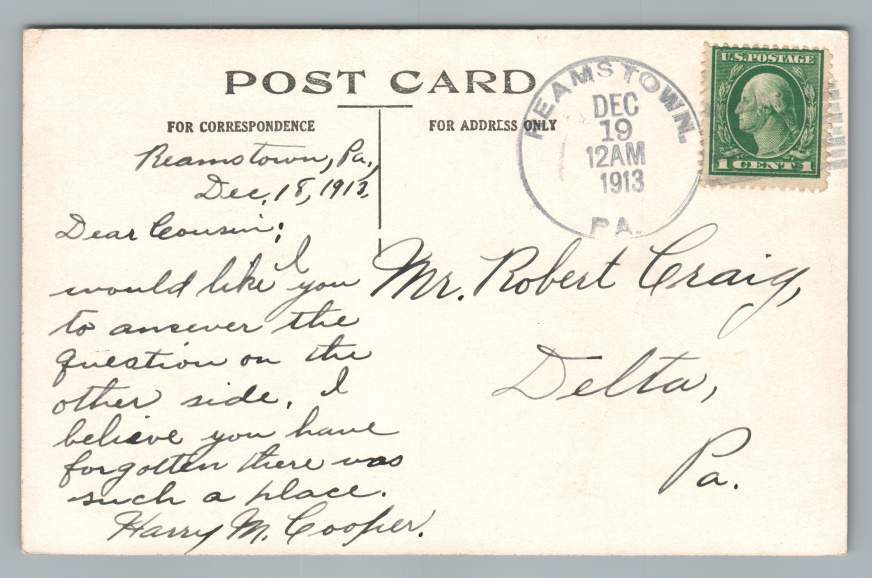 POST CARD
FOR CORRESPONDENCE
FOR ADDRESS ONLY
REAMSTOWN.
DEC
19
12AM
1913
PA.
U.S. POSTAGE
1 CENT 1
Reamstown, Pa.,
Dec. 18, 1913.
Dear Cousin;
I
would like you
to answer the
question on the
other side. I
believe you have
forgotten there was
such a place.
Harry M. Cooper.
Mr. Robert Craig,
Delta,
Pa.